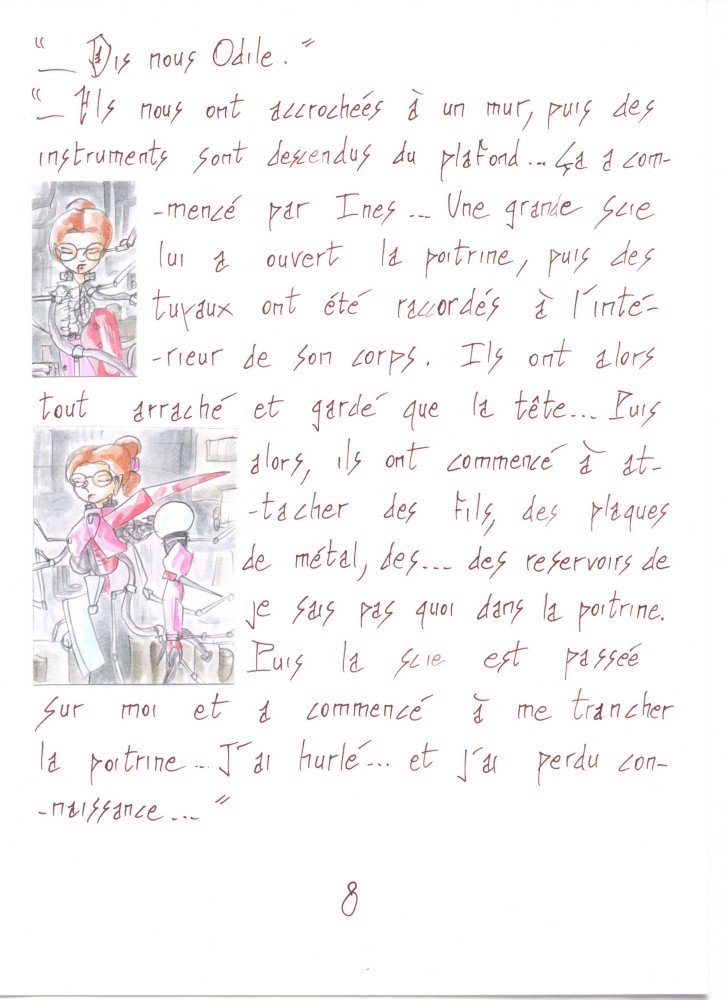 “_ Dis nous Odile.”
“_ Ils nous ont accrochées à un mur, puis des
instruments sont descendus du plafond... Ça a com-
-mencé par Ines... Une grande scie
lui a ouvert la poitrine, puis des
tuyaux ont été raccordés à l'inté-
-rieur de son corps. Ils ont alors
tout arraché et gardé que la tête... Puis
alors, ils ont commencé à at-
-tacher des fils, des plaques
de métal, des... des reservoirs de
je sais pas quoi dans la poitrine.
Puis la scie est passée
sur moi et a commencé à me trancher
la poitrine... J'ai hurlé... et j'ai perdu con-
-naissance...”
8